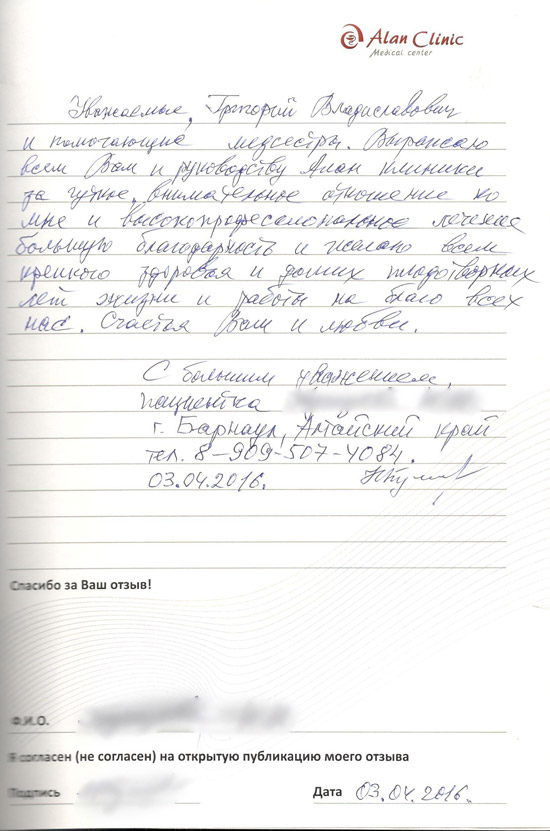 Alan Clinic
Medical center
Уважаемые, Григорий Владиславович
и помогающие медсестры. Выражаю
всем Вам и руководству Алан клиники
за чуткое, внимательное отношение ко
мне и высокопрофессиональное лечение
большую благодарность и желаю всем
крепкого здоровья и долгих плодотворных
лет жизни и работы на благо всех
нас. Счастья Вам и любви.
С большим уважением,
пациентка
г. Барнаул, Алтайский край
тел. 8-909-507-4084.
03.04.2016.
Спасибо за Ваш отзыв!
Ф.И.О.
Я согласен (не согласен) на открытую публикацию моего отзыва
Подпись Дата 03.04.2016.